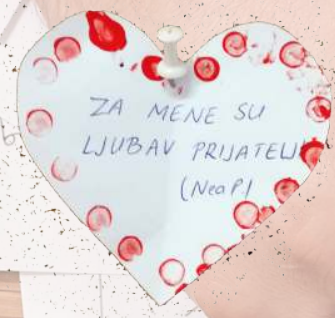 ZA MENE SU
LJUBAV PRIJATELJI
(Nea P.)